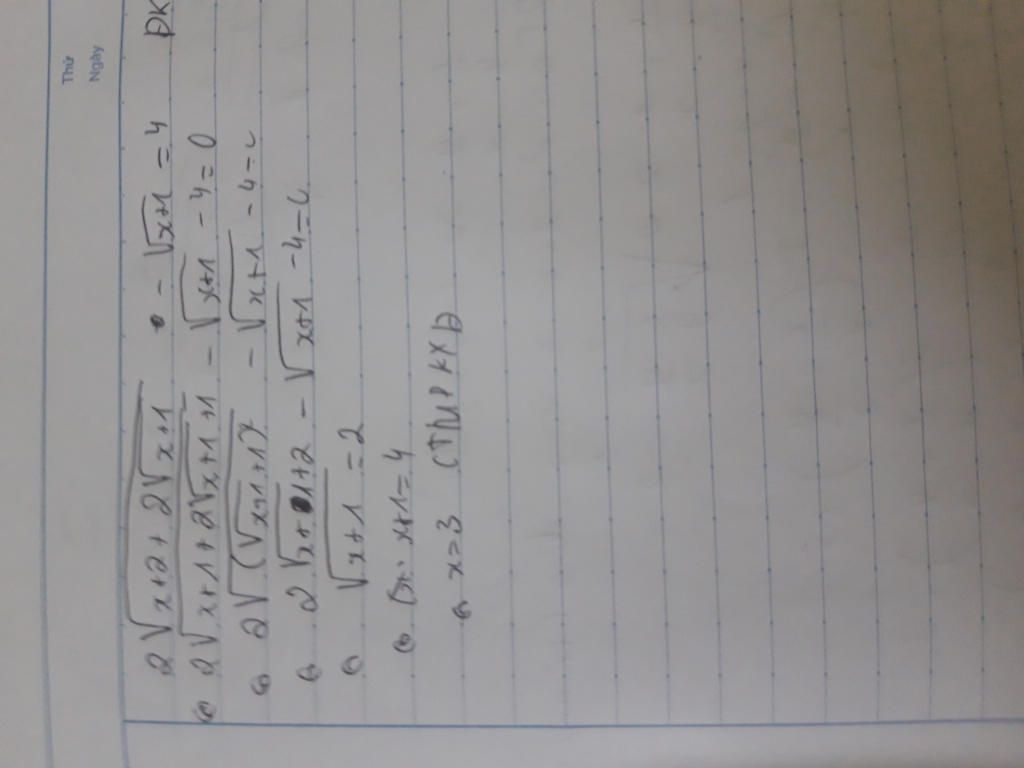 Thứ
Ngày
2√(x+2+2√(x+1)) - √(x+1) = 4 ĐK
⇔ 2√(x+1+2√(x+1)+1) - √(x+1) - 4 = 0
⇔ 2√((√(x+1)+1)²) - √(x+1) - 4 = 0
⇔ 2√(x+1)+2 - √(x+1) - 4 = 0
⇔ √(x+1) = 2
⇔ x+1 = 4
⇔ x = 3 (TMĐKXĐ)